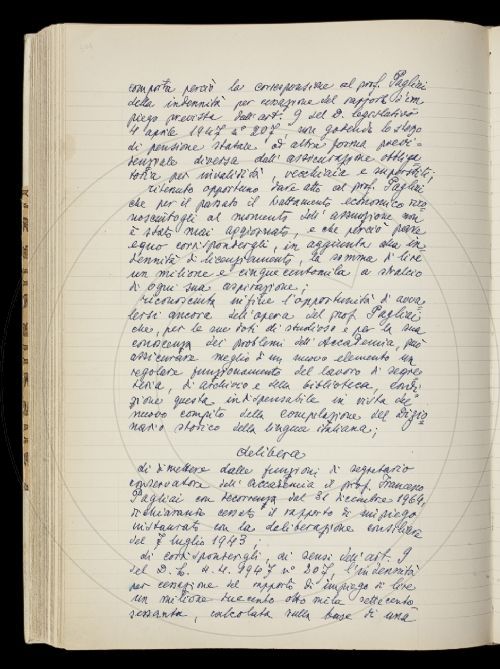 comporta perciò la corresponsione al prof. Pagliai
della indennità per cessazione del rapporto d'im=
piego prevista dall'art. 9 del D. legislativo
4 aprile 1947 n° 207, non godendo lo stesso
di pensione statale od altra forma previ=
denziale diversa dall'assicurazione obbliga
toria per invalidità, vecchiaia e superstiti;
ritenuto opportuno dare atto al prof. Pagliai
che per il passato il trattamento economico rico=
nosciutogli al momento dell'assunzione non
è stato mai aggiornato, e che perciò pare
equo corrispondergli, in aggiunta alla in
dennità di licenziamento, la somma di lire
un milione e cinquecentomila a stralcio
di ogni sua aspirazione;
riconosciuta infine l'opportunità di avva
lersi ancora dell'opera del prof. Pagliai
che, per le sue doti di studioso e per la sua
conoscenza dei problemi dell'Accademia, può
assicurare meglio di un nuovo elemento un
regolare funzionamento del lavoro di segre
teria, di archivio e della biblioteca, condi
zione questa indispensabile in vista del
nuovo compito della compilazione del Dizio
nario storico della lingua italiana;
delibera
di dimettere dalle funzioni di segretario
conservatore dell'accademia il prof. Francesco
Pagliai con decorrenza dal 31 dicembre 1964,
dichiarando cessato il rapporto di impiego
instaurato con la deliberazione consiliare
del 7 luglio 1943;
di corrispondergli, ai sensi dell'art. 9
del D. L. 4.4.947 n° 207, l'indennità
per cessazione del rapporto di impiego di lire
un milione duecento otto mila settecento
sessanta, calcolata sulla base di una